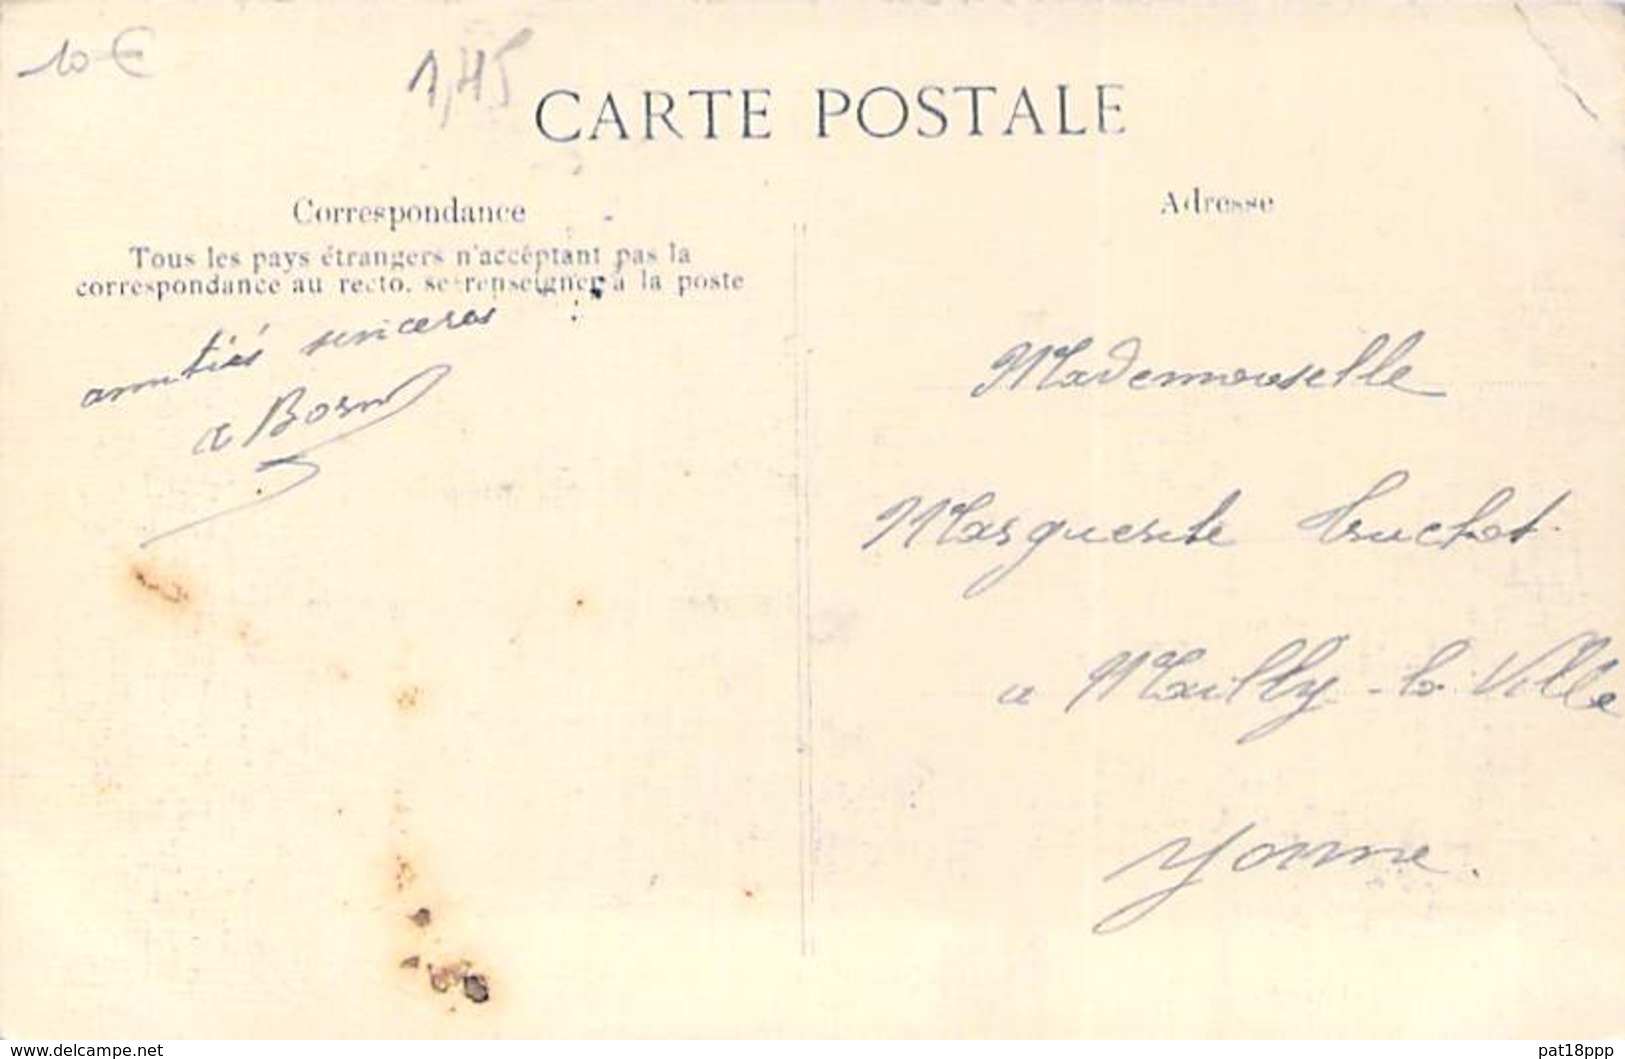 10 €
1,45
CARTE POSTALE
Correspondance
Tous les pays étrangers n'accéptant pas la
correspondance au recto, se renseigner à la poste
amitiés sinceres
a Born
Adresse
Mademoiselle
Marguerite Truchot
a Mailly-la-Ville
Yonne.
www.delcampe.net
pat18ppp